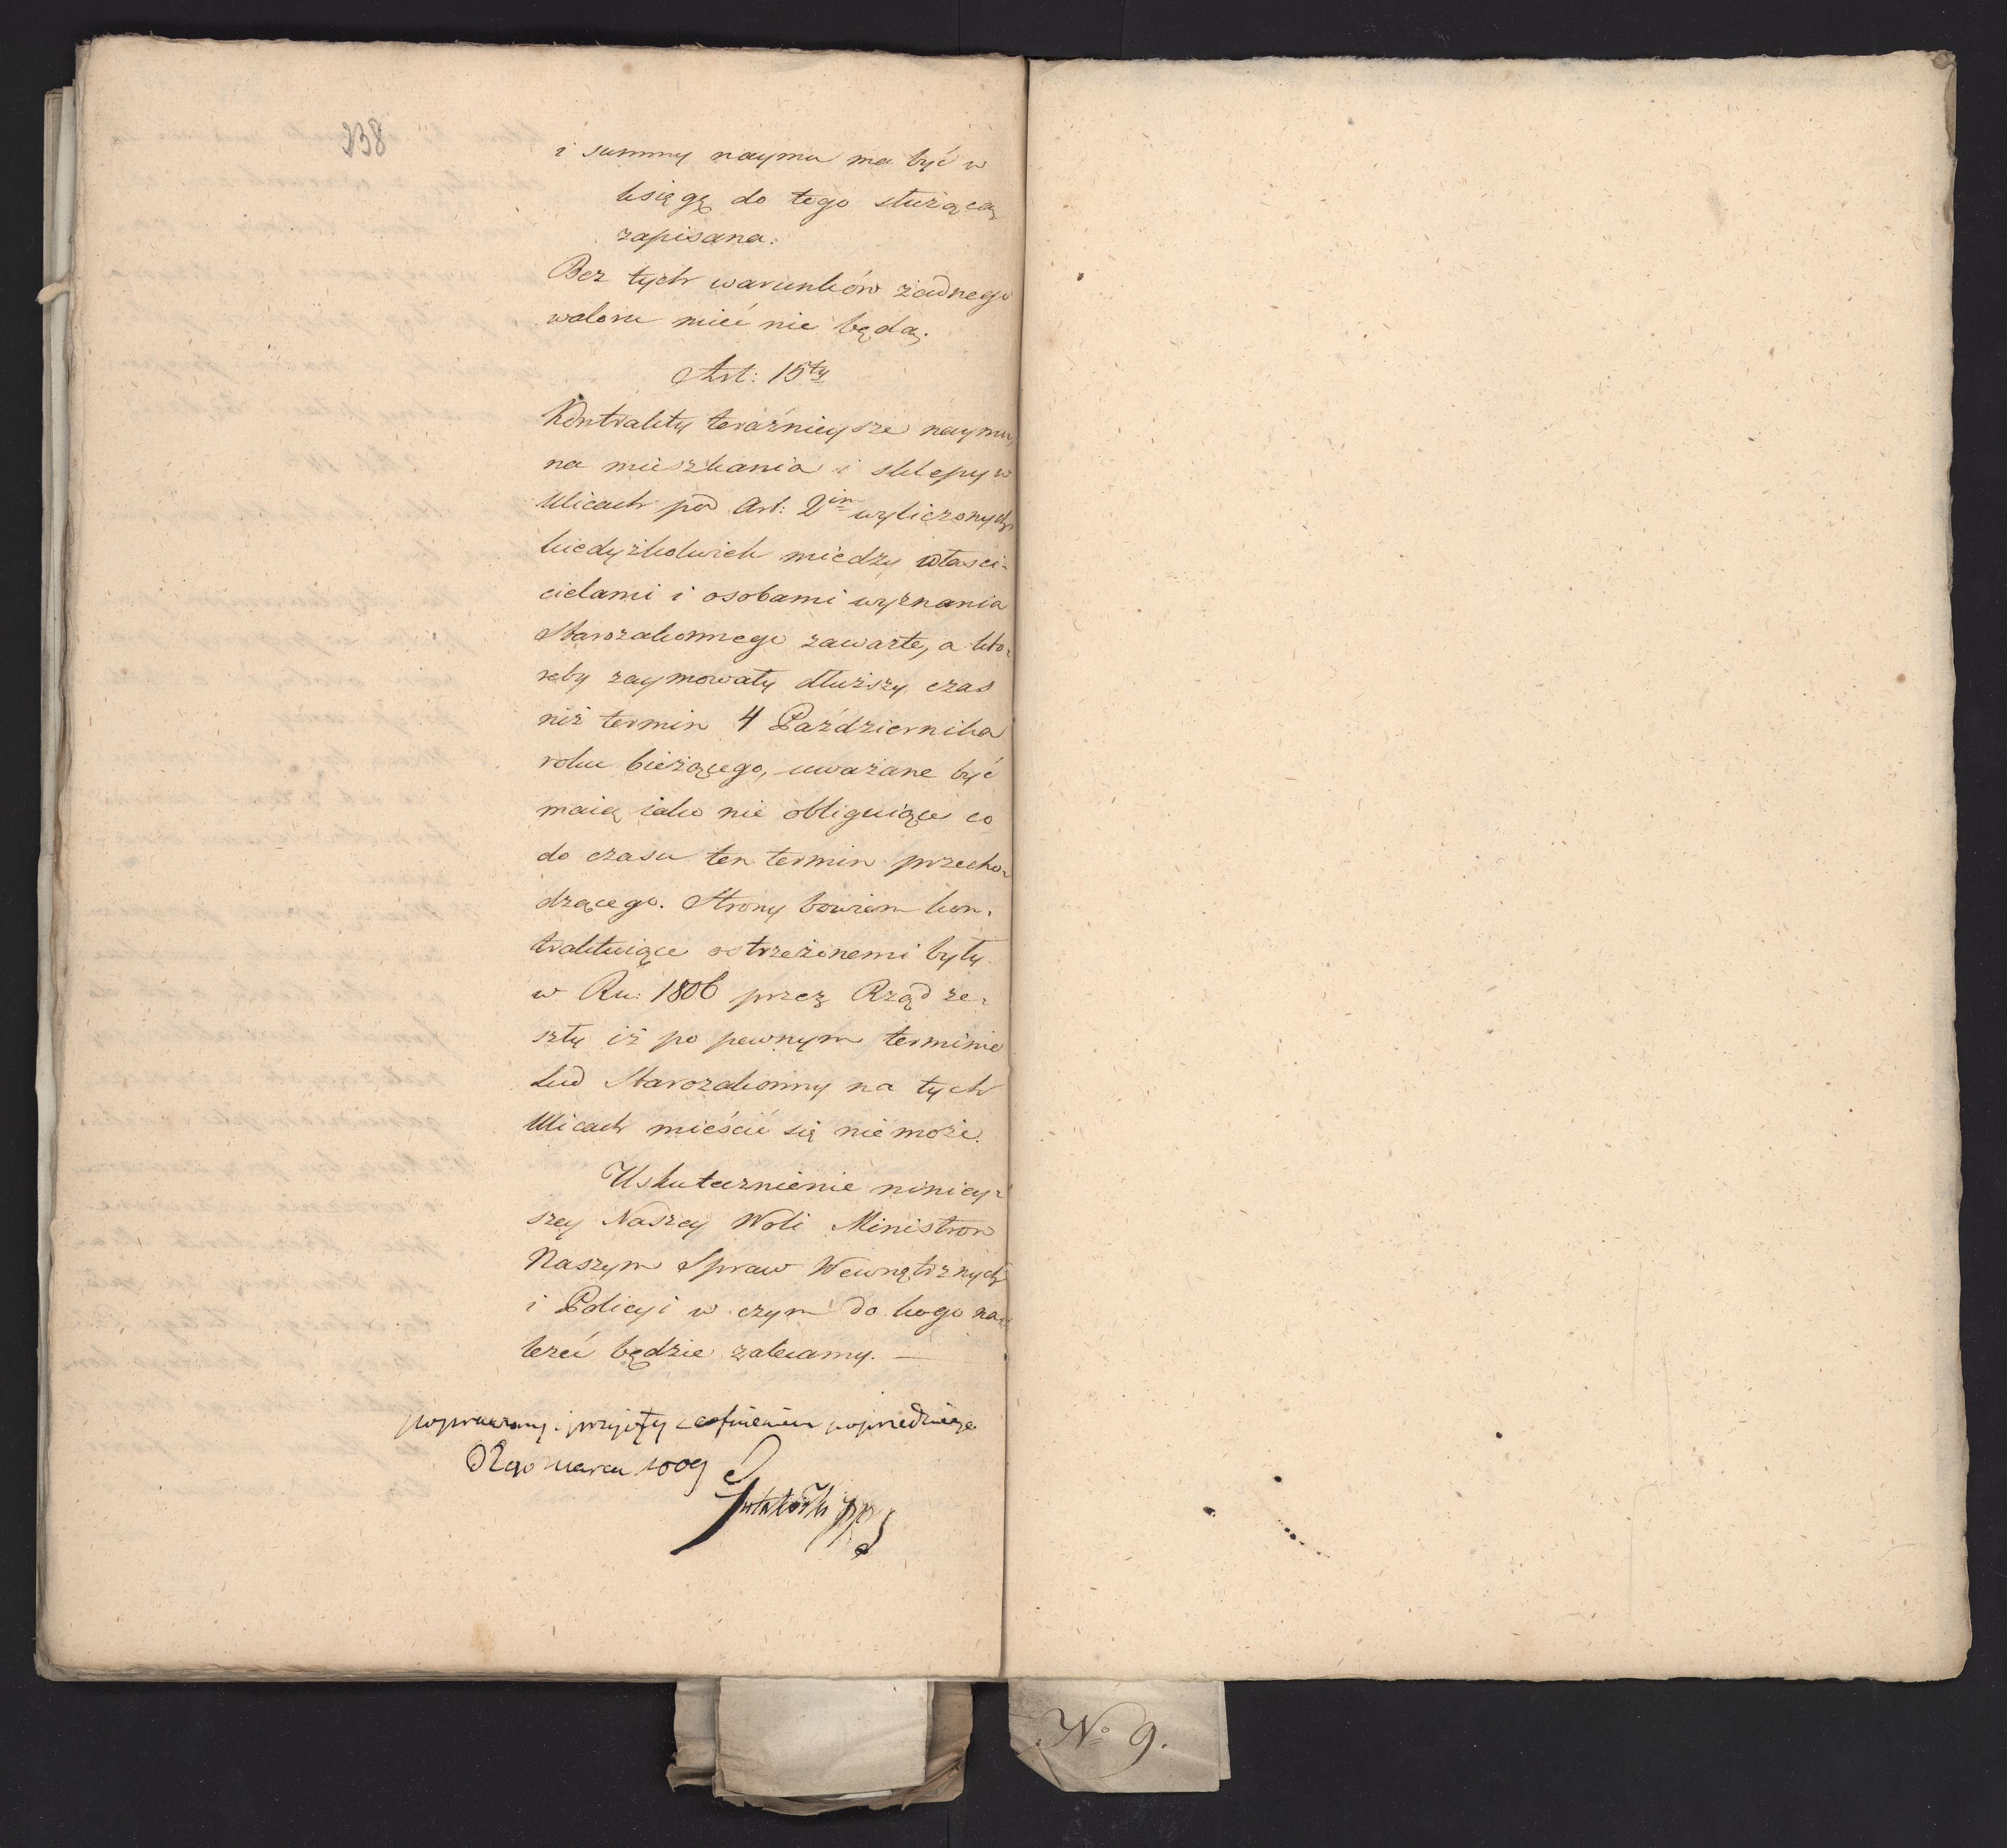 238
i summy naymu ma być w
księgę do tego służącą
zapisana.
Bez tych warunków żadnego
waloru mieć nie będą.
Art: 15ty
Kontrakty teraźnieysze naymu,
na mieszkania i sklepy w
Ulicach pod Art: 2im wyliczonych
kiedyżkolwiek między własci-
cielami i osobami wyznania
Starozakonnego zawarte, a któ-
reby zaymowały dłuższy czas
niż termin 4 Października
roku bieżącego, uważane być
maią iako nie obliguiące co
do czasu ten termin przecho-
dzącego. Strony bowiem kon-
traktuiące ostrzeżonemi były
w Ru: 1806 przez Rząd ze-
szły iż po pewnym terminie
Lud Starozakonny na tych
Ulicach mieścić się nie może.
Uskutecznienie niniey-
szey Naszey Woli Ministrom
Naszym Spraw Wewnętrznych
i Policyi w czym do kogo na-
leżeć będzie zalecamy. —
poprawiony i przyięty z cofnieniem poprzedniego
marca 1809
No 9.